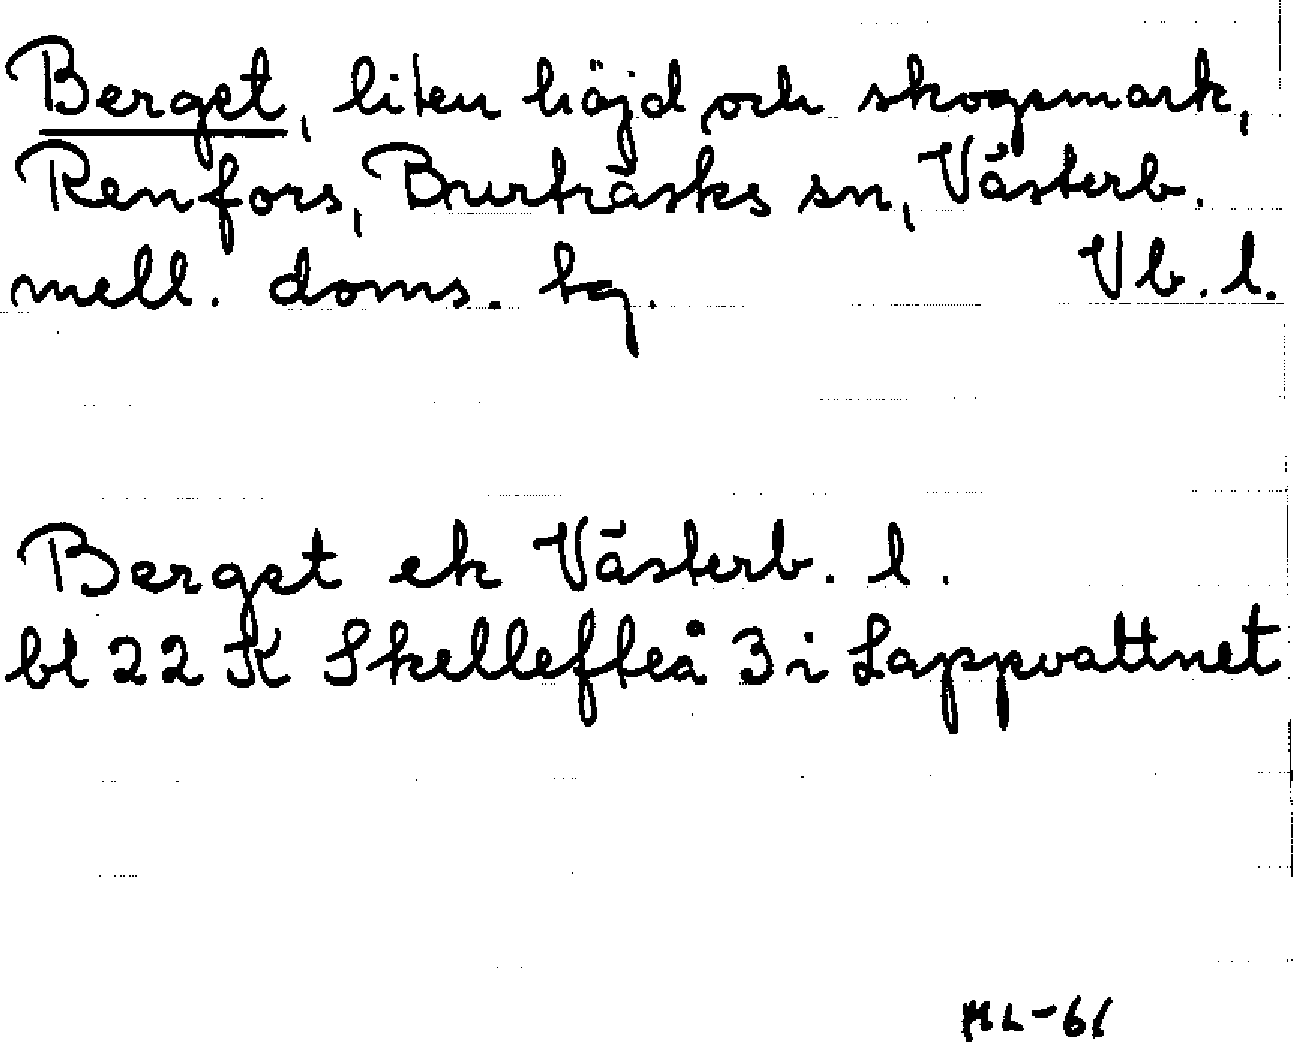 Berget, liten höjd och skogsmark,
Renfors, Burträsks sn, Västerb.
mell. doms. tg. Vb. l.
Berget ek Västerb. l.
bl 22 K Skellefteå 3 i Lappvattnet
ML-61